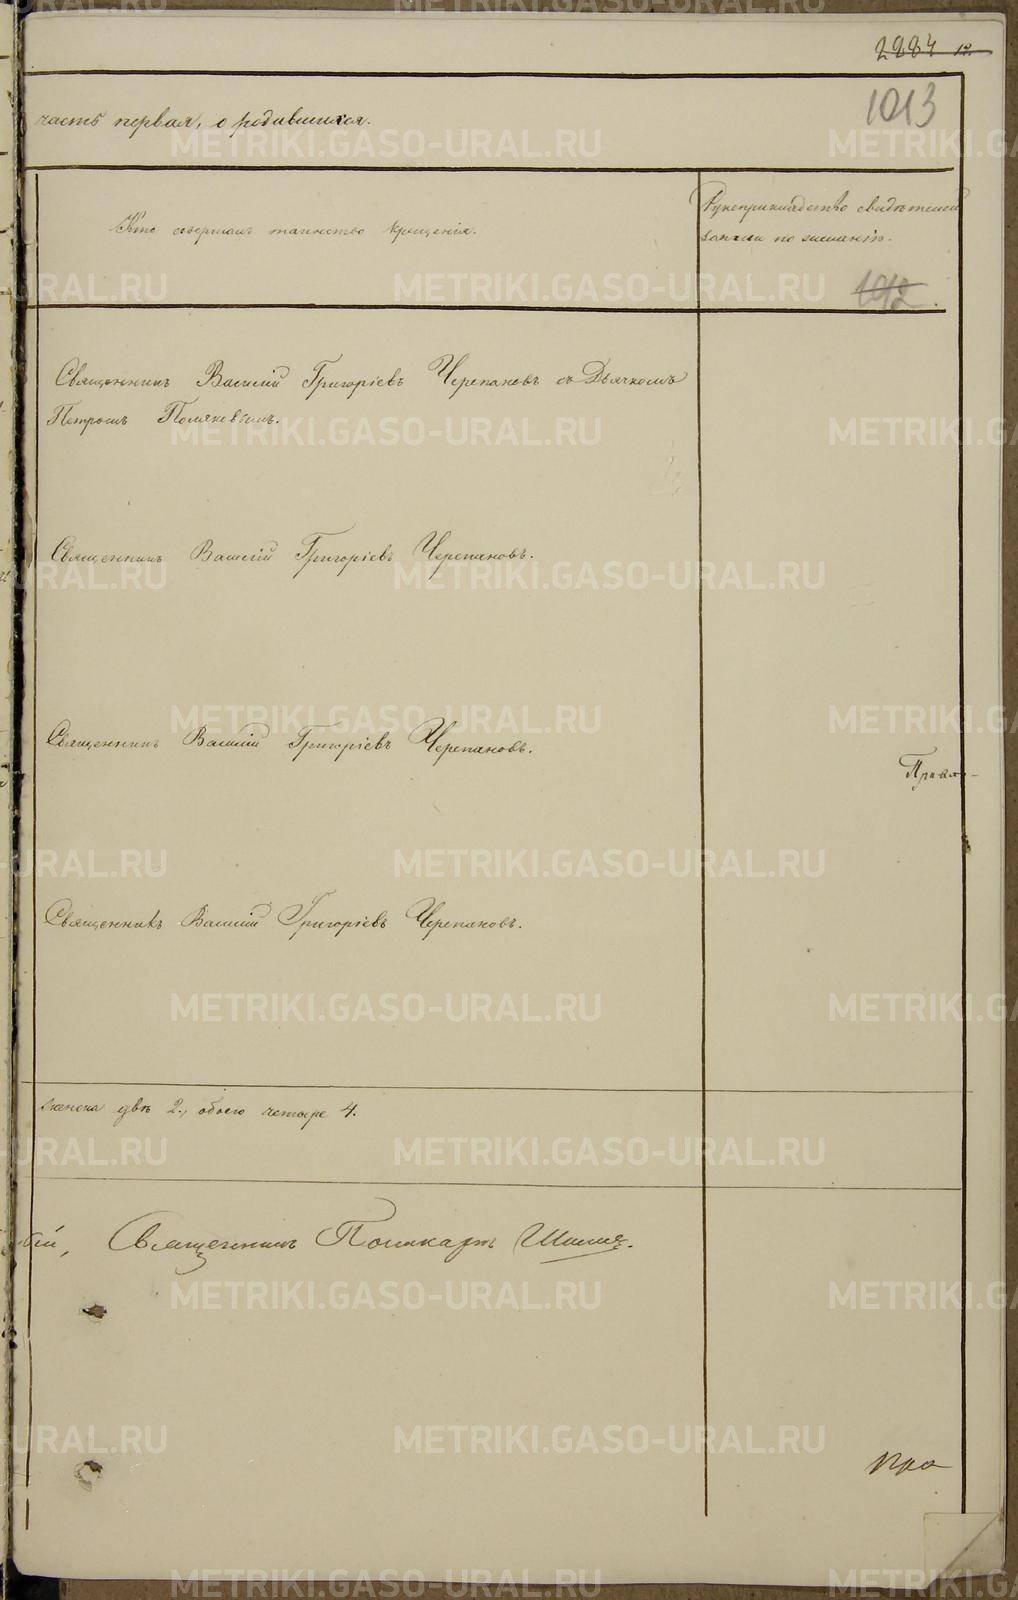 2284 12.
1013
часть первая, о родившихся.
Кто совершалъ таинство крещенія.
Рукоприкладство свидѣтелей
записи по желанію.
1012
Священникъ Василій Григоріевъ Черепановъ съ Дьячкомъ
Петромъ Поляковымъ.
Священникъ Василій Григоріевъ Черепановъ.
Священникъ Василій Григоріевъ Черепановъ.
Священникъ Василій Григоріевъ Черепановъ.
женска двѣ 2., обоего четыре 4.
Священникъ Поликарпъ
METRIKI.GASO-URAL.RU